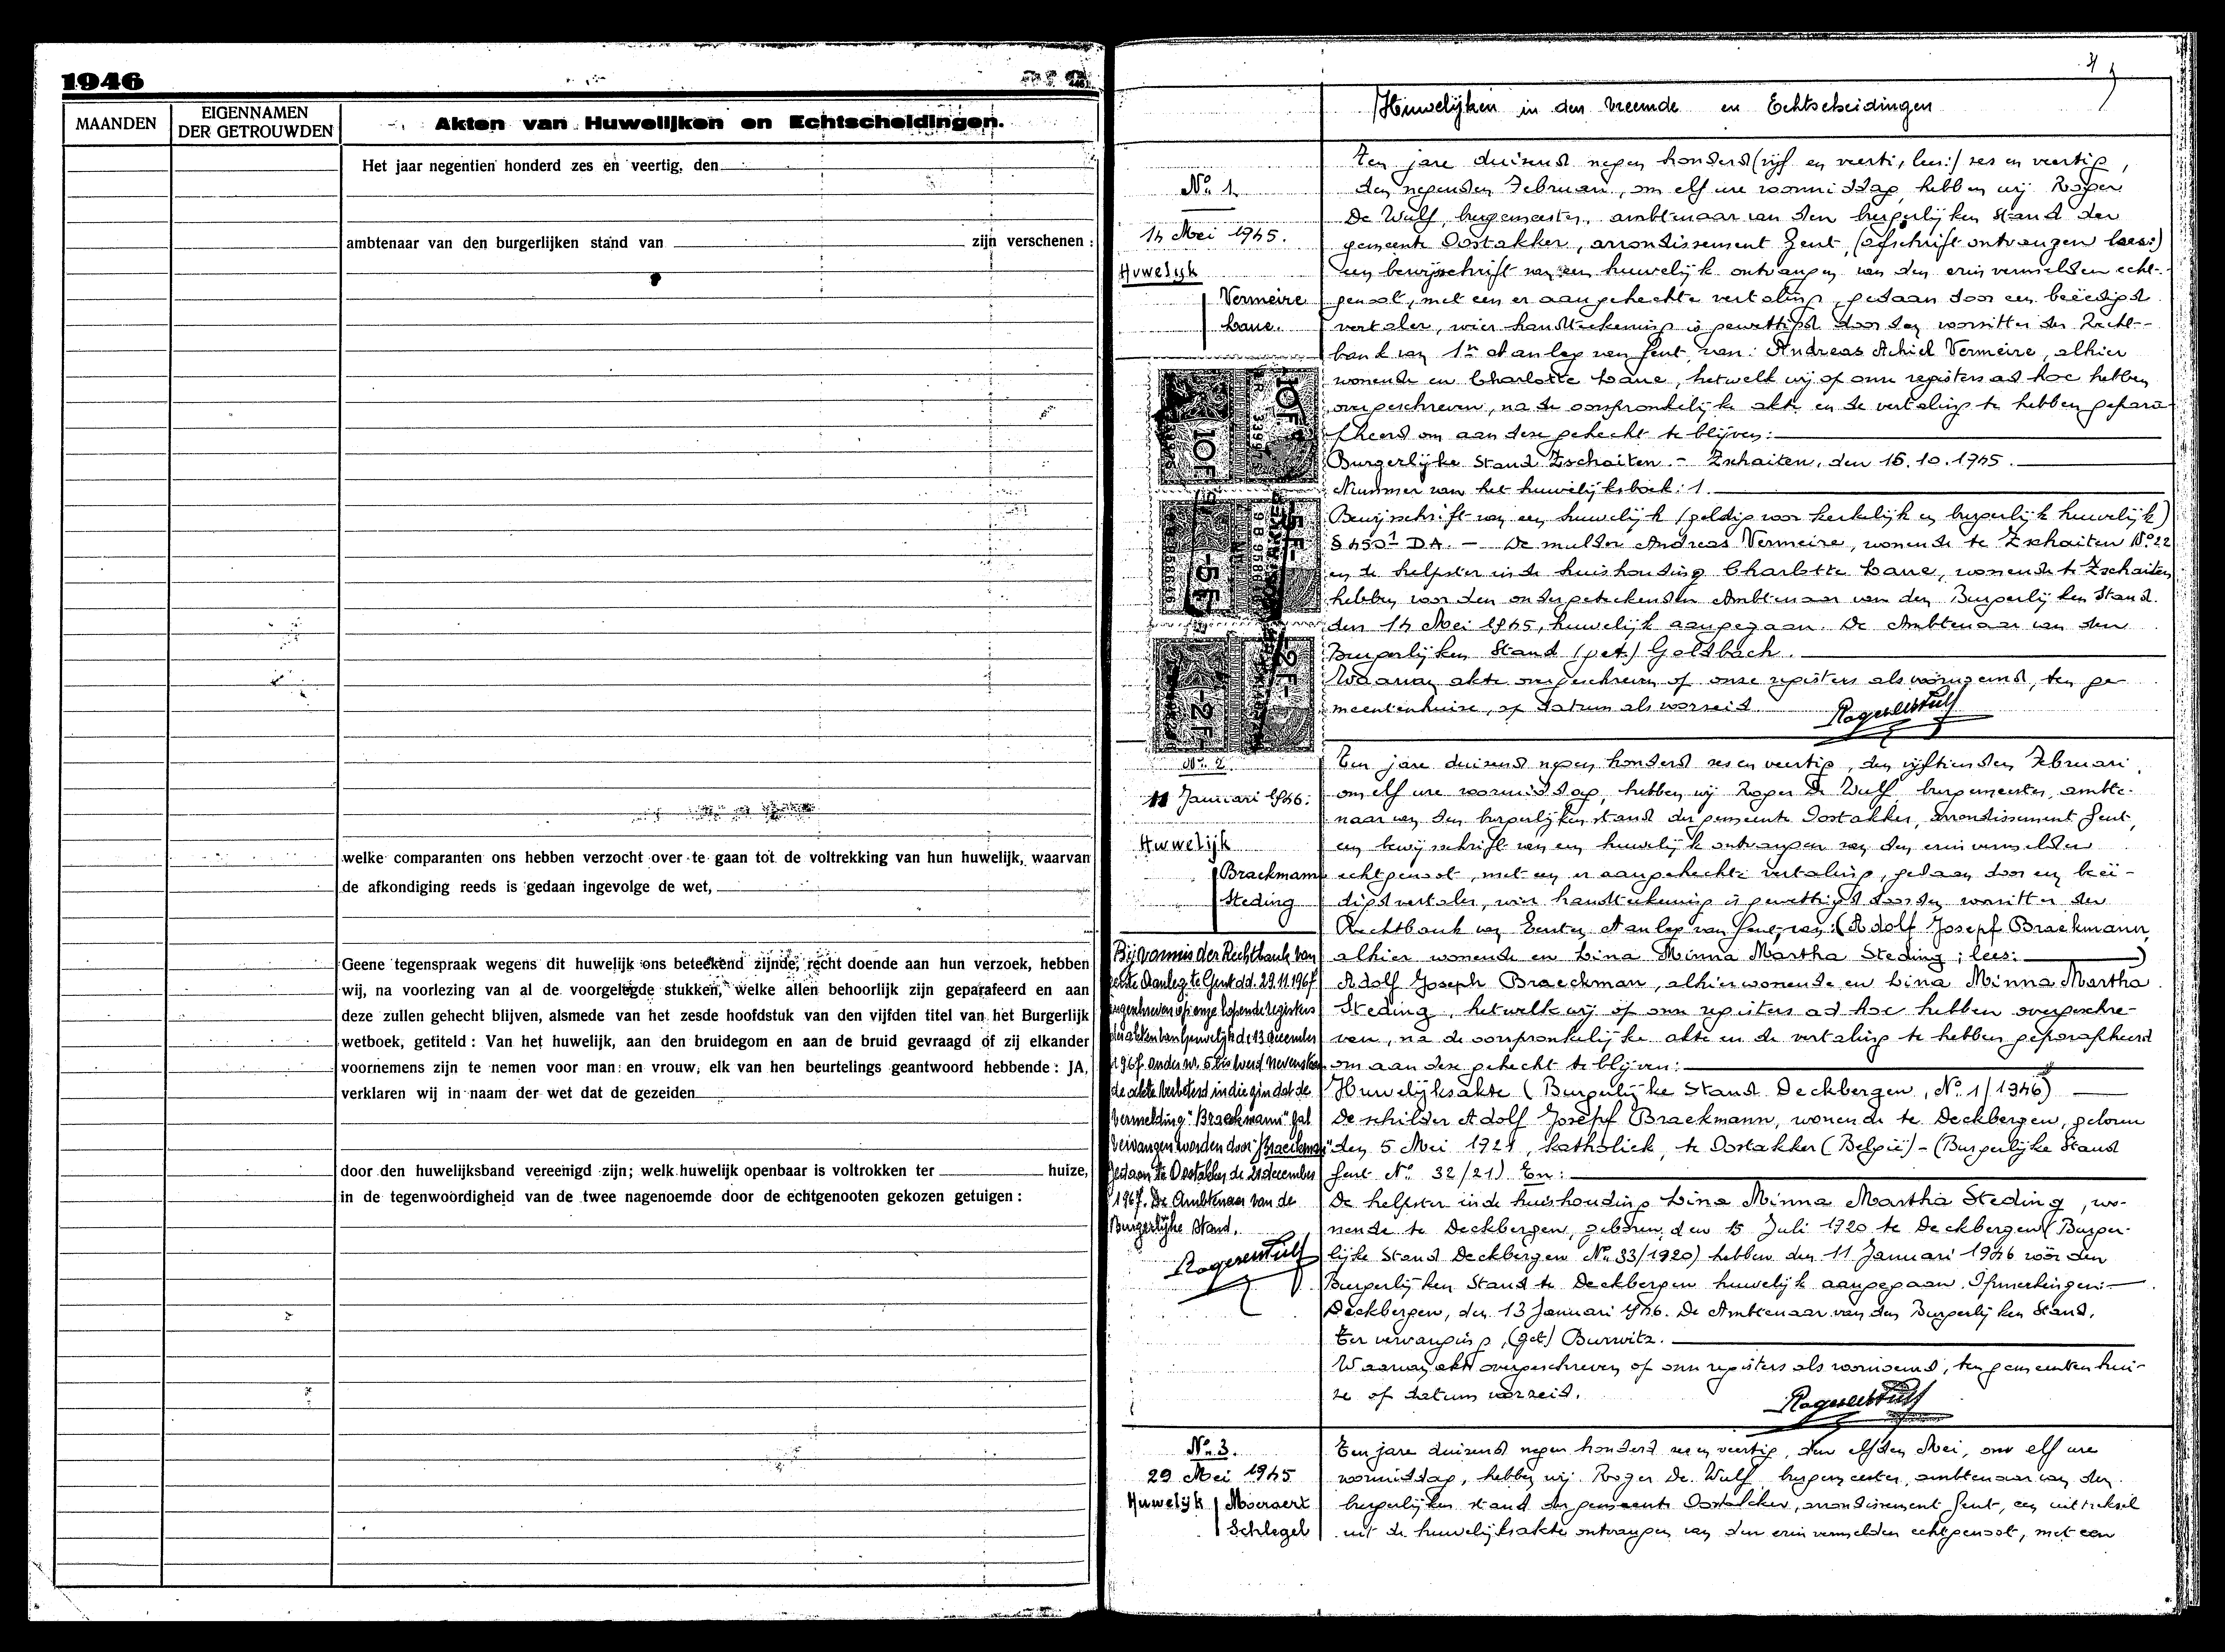 1946
MAANDEN
EIGENNAMEN
DER GETROUWDEN
Akten van Huwelijken en Echtscheidingen.
Het jaar negentien honderd zes en veertig, den
ambtenaar van den burgerlijken stand van zijn verschenen :
welke comparanten ons hebben verzocht over te gaan tot de voltrekking van hun huwelijk, waarvan
de afkondiging reeds is gedaan ingevolge de wet,
Geene tegenspraak wegens dit huwelijk ons beteekend zijnde, recht doende aan hun verzoek, hebben
wij, na voorlezing van al de voorgelegde stukken, welke allen behoorlijk zijn geparafeerd en aan
deze zullen gehecht blijven, alsmede van het zesde hoofdstuk van den vijfden titel van het Burgerlijk
wetboek, getiteld : Van het huwelijk, aan den bruidegom en aan de bruid gevraagd of zij elkander
voornemens zijn te nemen voor man en vrouw, elk van hen beurtelings geantwoord hebbende : JA,
verklaren wij in naam der wet dat de gezeiden
door den huwelijksband vereenigd zijn; welk huwelijk openbaar is voltrokken ter huize,
in de tegenwoordigheid van de twee nagenoemde door de echtgenooten gekozen getuigen :
Huwelijken in den vreemde en Echtscheidingen
No 1.
14 Mei 1945.
Huwelijk
Vermeire
Laue.
Ten jare duizend negen honderd (vijf en veerti, lees:) zes en veertig,
den negenden Februari, om elf ure voormiddag, hebben wij Roger
De Wulf, burgemeester, ambtenaar van den burgerlijken stand der
gemeente Oostakker, arrondissement Gent, (afschrift ontvangen lees:)
een bewijsschrift van een huwelijk ontvangen van den erin vermelden echt-
genoot, met een er aangehechte vertaling, gedaan door een beëedigd
vertaler, wier handteekening is gewettigd door den voorzitter der Recht-
bank van 1n Aanleg van Gent, van: Andreas Achiel Vermeire, alhier
wonende en Charlotte Laue, hetwelk wij op onze registers ad hoc hebben
overgeschreven, na de oorspronkelijke akte en de vertaling te hebben gepara-
pheerd om aan deze gehecht te blijven:
Burgerlijke Stand Zschaiten. - Zschaiten, den 16.10.1945.
Nummer van het huwelijksboek: 1.
Bewijsschrift van een huwelijk (geldig voor kerkelijk en burgerlijk huwelijk)
§ 450 1 DA. - De mulder Andreas Vermeire, wonende te Zschaiten No 22
en de helpster in de huishouding Charlotte Laue, wonende te Zschaiten
hebben voor den ondergeteekenden Ambtenaar van den Burgerlijken Stand
den 14 Mei 1945, huwelijk aangegaan. De Ambtenaar van den
Burgerlijken Stand (get.) Goldbach.
Waarvan akte overgeschreven op onze registers als voornoemd, ten ge-
meentenhuize, op datum als voorzeid.
Roger De Wulf
10F
5F
2F
No. 2.
11 Januari 1946.
Huwelijk
Braekmann
Steding
Ten jare duizend negen honderd zes en veertig, den vijftienden Februari,
om elf ure voormiddag, hebben wij Roger De Wulf burgemeester, ambte-
naar van den burgerlijken stand der gemeente Oostakker, arrondissement Gent,
een bewijsschrift van een huwelijk ontvangen van den erin vermelden
echtgenoot, met een er aangehechte vertaling, gedaan door een beëe-
digd vertaler, wier handteekening is gewettigd door den voorzitter der
Rechtbank van Eersten Aanleg van Gent, van: (Adolf Josepf Braekmann,
alhier wonende en Lina Minna Martha Steding; lees:)
Adolf Joseph Braeckman, alhier wonende en Lina Minna Martha
Steding, hetwelk wij op onze registers ad hoc hebben overgeschre-
ven, na de oorspronkelijke akte en de vertaling te hebben geparapheerd
om aan deze gehecht te blijven:
Huwelijksakte (Burgerlijke Stand Deckbergen, No 1/1946)
De schilder Adolf Josepf Braekmann, wonende te Deckbergen, geboren
den 5 Mei 1921, katholiek, te Oostakker (België) - (Burgerlijke Stand
Gent No 32/21) En:
De helpster in de huishouding Lina Minna Martha Steding, wo-
nende te Deckbergen, geboren, den 15 Juli 1920 te Deckbergen (Burger-
lijke Stand Deckbergen No 33/1920) hebben den 11 Januari 1946 vóór den
Burgerlijken Stand te Deckbergen huwelijk aangegaan. Opmerkingen:
Deckbergen, den 13 Januari 1946. De Ambtenaar van den Burgerlijken Stand,
Ter vervanging, (get) Burwitz.
Waarvan akte overgeschreven op onze registers als voornoemd, ten gemeentenhui-
ze op datum voorzeid.
Roger De Wulf
Bij vonnis der Rechtbank van
eerste Aanleg te Gent dd. 29.11.1967
ingeschreven op onze lopende registers
der akten van huwelijk de 13 december
1967 onder nr. 5 bis werd nevenstaan
de akte verbeterd in die zin dat de
vermelding "Braekmann" zal
vervangen worden door "Braeckman"
Gedaan te Oostakker de 21 december
1967. De Ambtenaar van de
Burgerlijke Stand.
Roger De Wulf
No. 3.
29 Mei 1945
Huwelijk
Moeraert
Schlegel
Ten jare duizend negen honderd zes en veertig, den elfden Mei, om elf ure
voormiddag, hebben wij Roger De Wulf burgemeester, ambtenaar van den
burgerlijken stand der gemeente Oostakker, arrondissement Gent, een uittreksel
uit de huwelijksakte ontvangen van den erin vermelden echtgenoot, met een